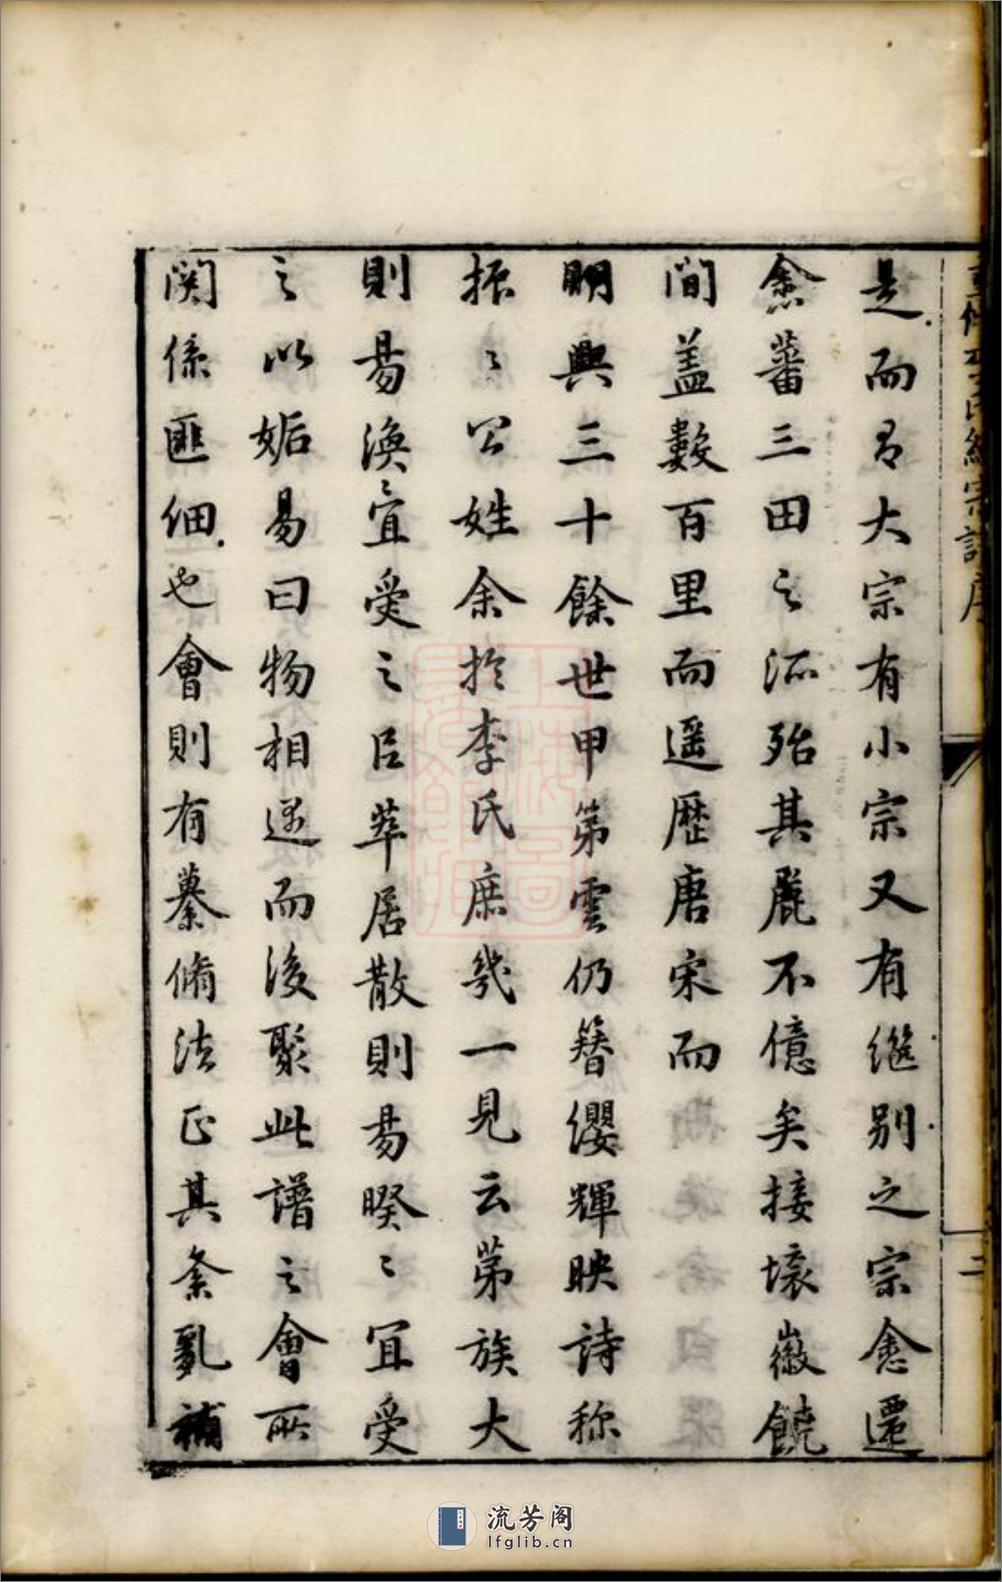 是而為大宗有小宗又有繼别之宗愈遷
愈蕃三田之派殆其麗不億矣接壤徽饒
間盖數百里而遥歷唐宋而
明興三十餘世甲第雲仍簪纓輝映詩称
振〻公姓余於李氏庶幾一見云第族大
則易渙〻宜受之目萃居散則易暌〻宜受
之以姤易曰物相遇而後聚此譜之會所
関係匪細也會則有纂脩法正其紊亂補
宗譜序
二
上海圖
流芳阁
lfglib.cn